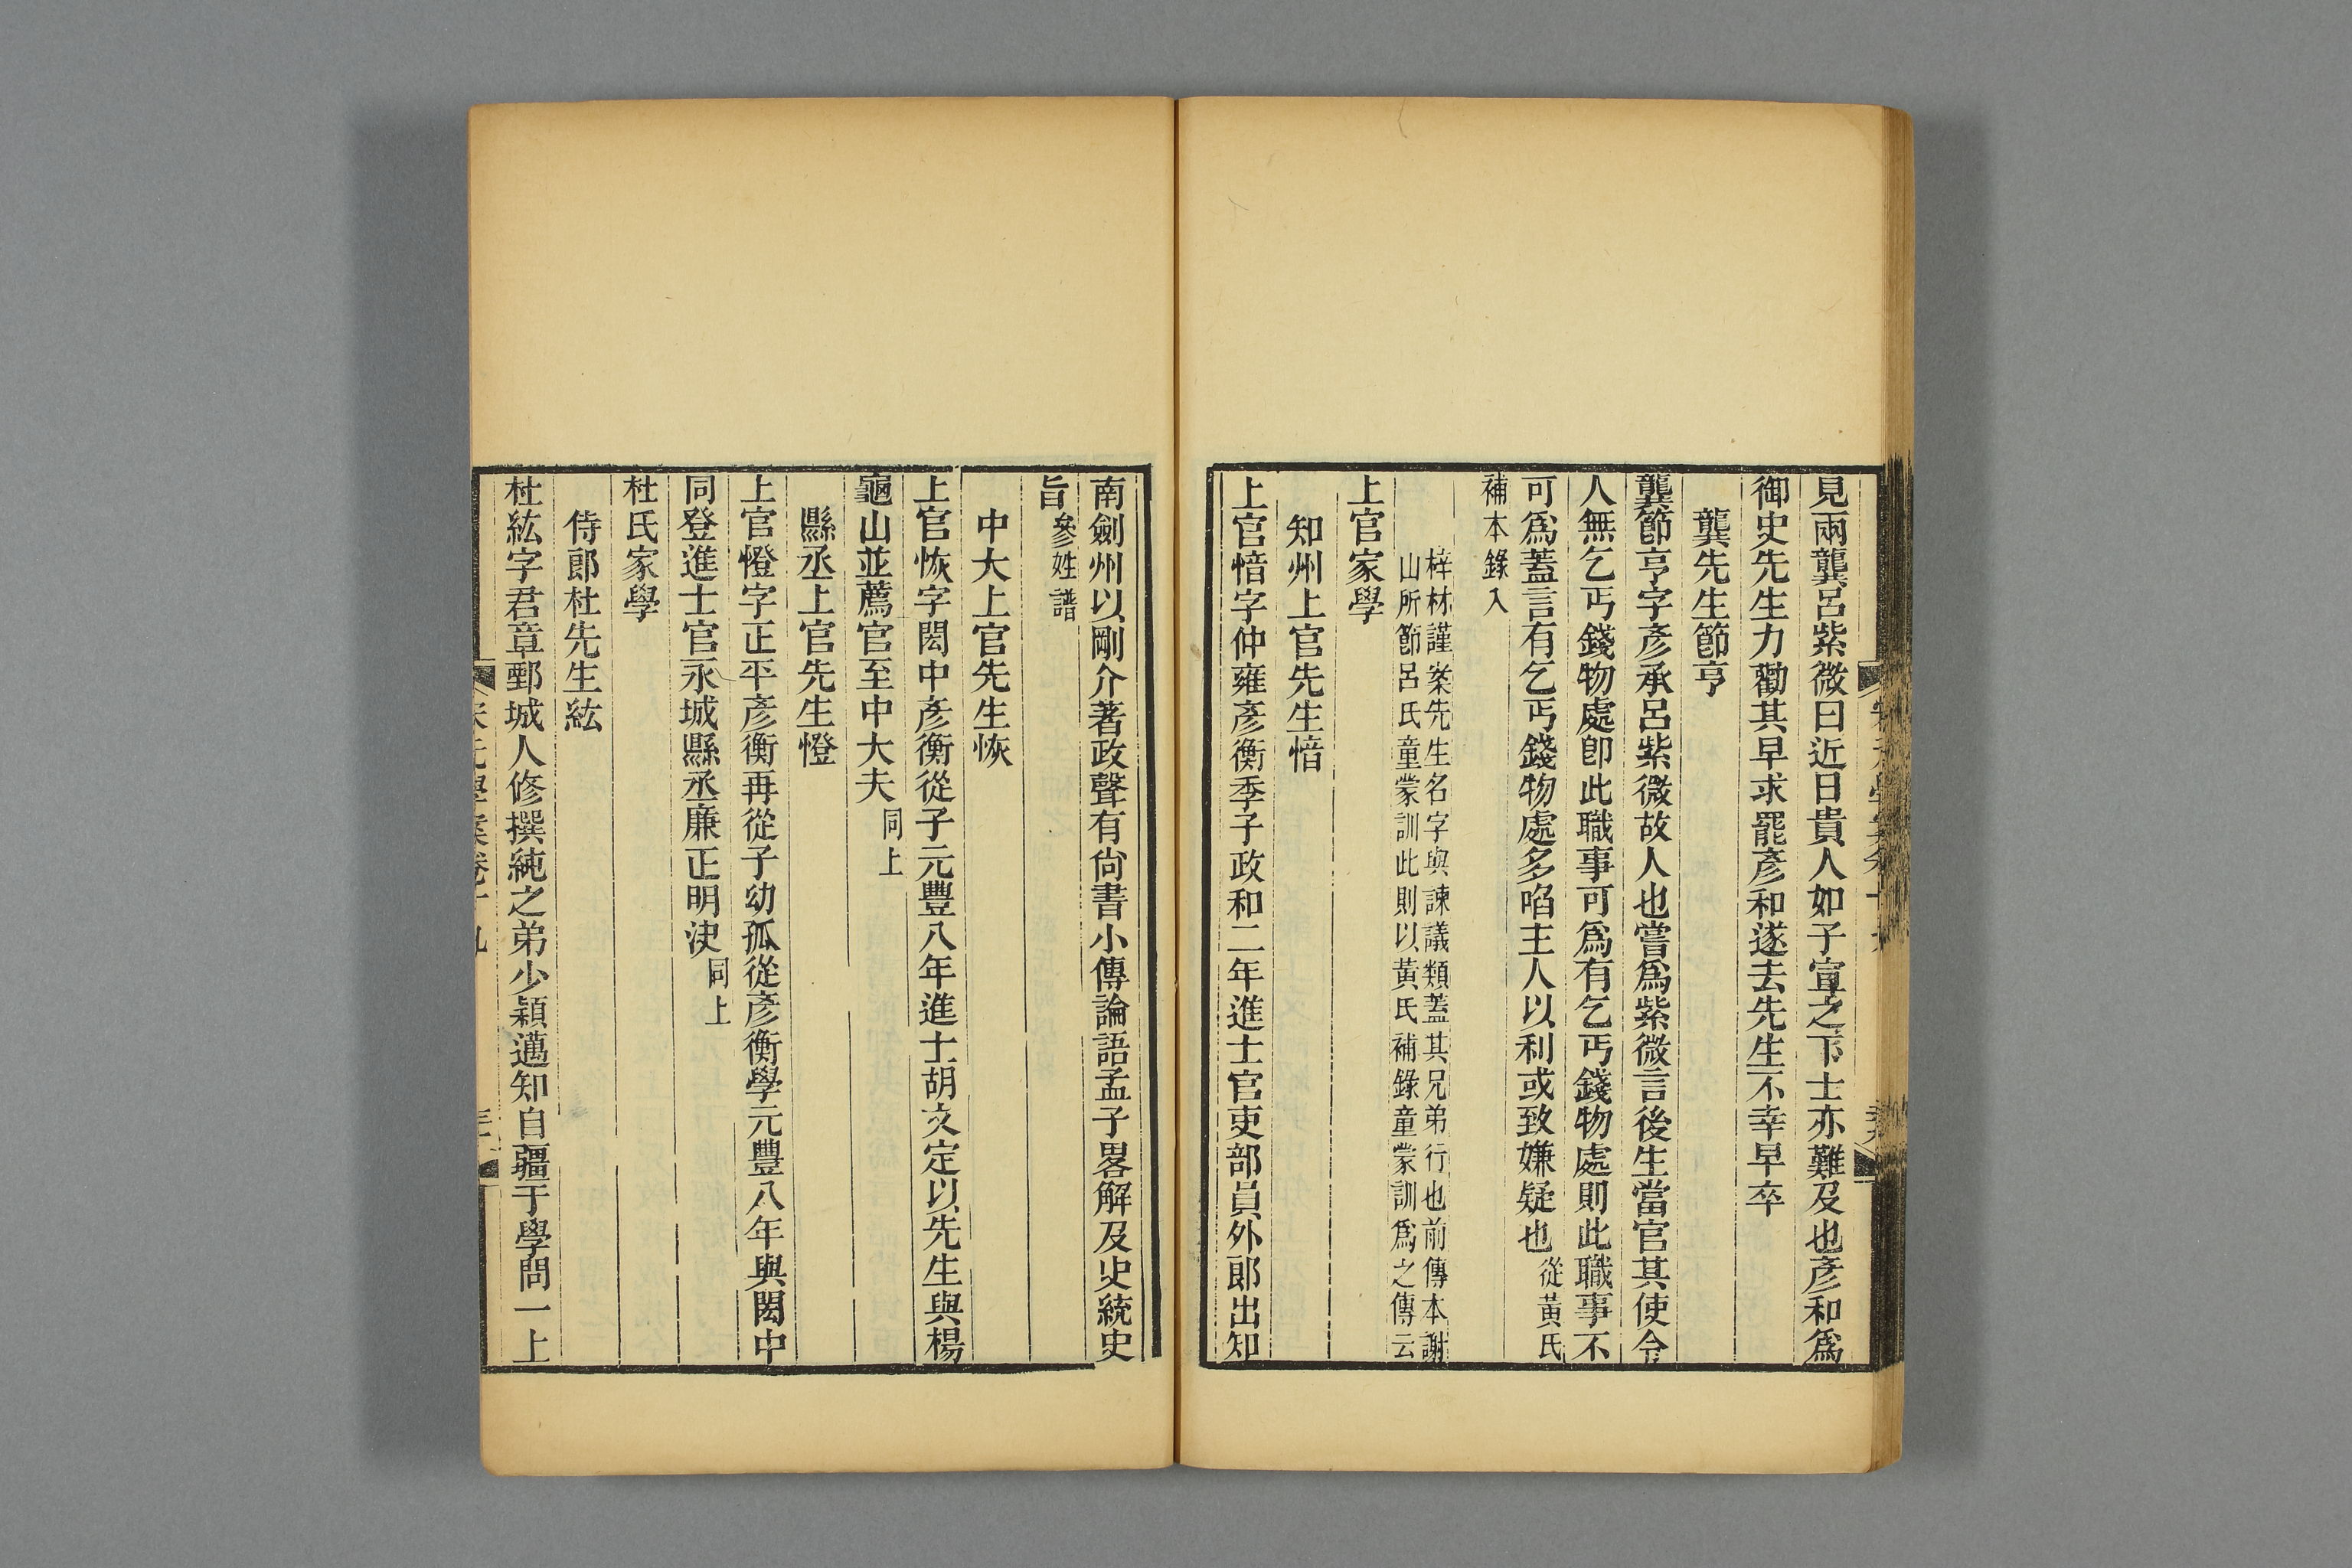 見兩龔呂紫微曰近日貴人如子宣之下士亦難及也彥和爲
御史先生力勸其早求罷彥和遂去先生不幸早卒
龔先生節亨
龔節亨字彥承呂紫微故人也嘗爲紫微言後生當官其使令
人無乞丐錢物處卽此職事可爲有乞丐錢物處則此職事不
可爲蓋言有乞丐錢物處多陷主人以利或致嫌疑也從黃氏
補本錄入
梓材謹案先生名字與諫議類蓋其兄弟行也前傳本謝
山所節呂氏童蒙訓此則以黃氏補錄童蒙訓爲之傳云
上官家學
知州上官先生愔
上官愔字仲雍彥衡季子政和二年進士官吏部員外郞出知
南劍州以剛介著政聲有尙書小傳論語孟子畧解及史統史
旨參姓譜
中大上官先生恢
上官恢字閎中彥衡從子元豐八年進士胡文定以先生與楊
龜山並薦官至中大夫同上
縣丞上官先生憕
上官憕字正平彥衡再從子幼孤從彥衡學元豐八年與閎中
同登進士官永城縣丞廉正明決同上
杜氏家學
侍郎杜先生紘
杜紘字君章鄄城人修撰純之弟少穎邁知自彊于學問一上
宋元學案卷十九